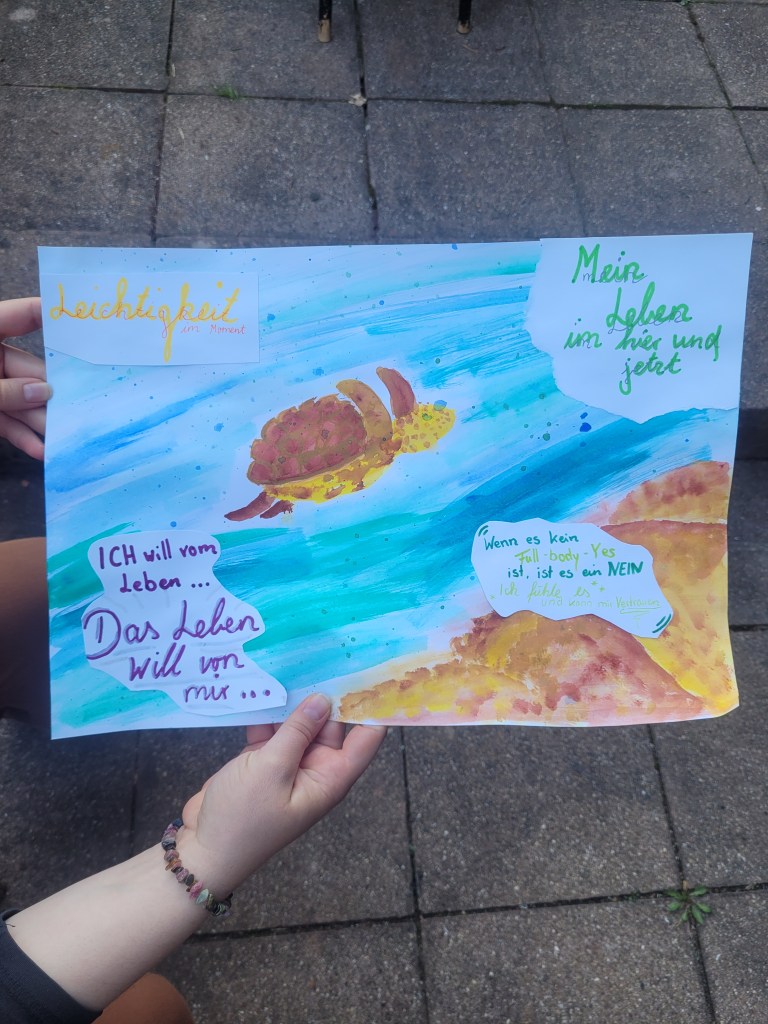 Leichtigkeit
im Moment
Mein
Leben
im hier und
jetzt
ICH will vom
Leben ...
Das Leben
will von
mir ...
Wenn es kein
Full-body-Yes
ist, ist es ein NEIN
Ich fühle es
und kann mir Vertrauen